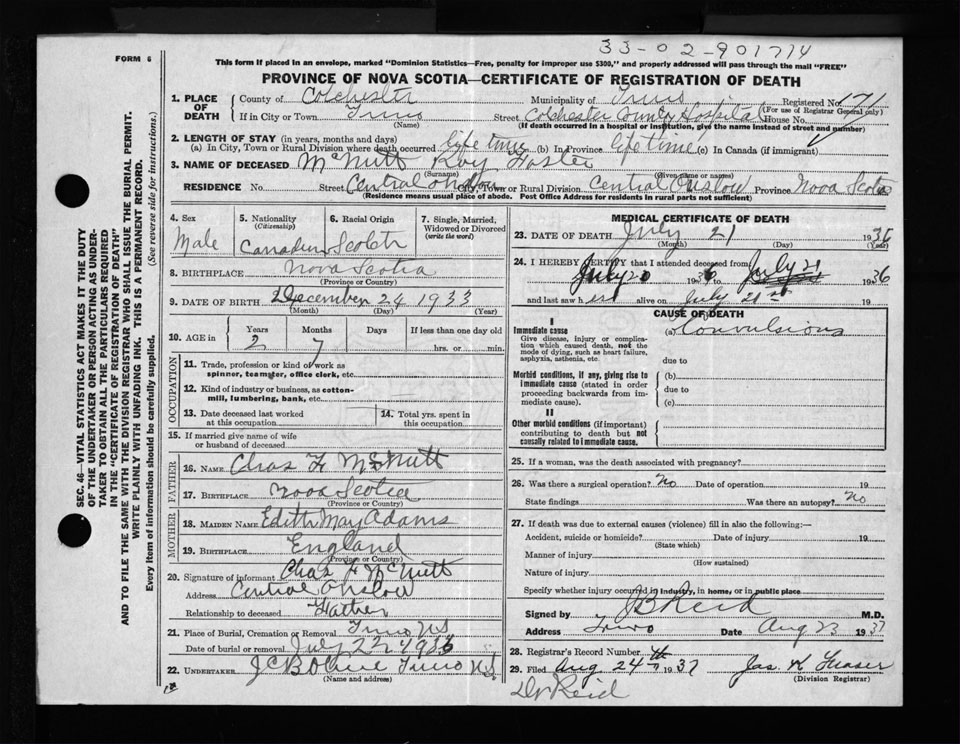 33-02-901714
FORM 6
This form if placed in an envelope, marked "Dominion Statistics—Free, penalty for improper use $300," and properly addressed will pass through the mail "FREE"
PROVINCE OF NOVA SCOTIA—CERTIFICATE OF REGISTRATION OF DEATH
1. PLACE OF DEATH County of Colchester Municipality of Truro Registered No. 171
(For use of Registrar General only)
If in City or Town Truro Street Colchester County Hospital House No.
(Name) (If death occurred in a hospital or institution, give the name instead of street and number)
2. LENGTH OF STAY (in years, months and days)
(a) In City, Town or Rural Division where death occurred life time (b) In Province life time (c) In Canada (if immigrant)
3. NAME OF DECEASED McNutt Roy Foster
(Surname) (Given name or names)
RESIDENCE No. Street Central Onslow City, Town or Rural Division Central Onslow Province Nova Scotia
(Residence means usual place of abode. Post Office Address for residents in rural parts not sufficient)
4. Sex Male
5. Nationality (Citizenship) Canadian
6. Racial Origin Scotch
7. Single, Married, Widowed or Divorced (write the word)
8. BIRTHPLACE Nova Scotia
(Province or Country)
9. DATE OF BIRTH December 24 1933
(Month) (Day) (Year)
10. AGE in Years 2 Months 7 Days If less than one day old hrs. or min.
OCCUPATION
11. Trade, profession or kind of work as spinner, teamster, office clerk, etc.
12. Kind of industry or business, as cotton-mill, lumbering, bank, etc.
13. Date deceased last worked at this occupation
14. Total yrs. spent in this occupation
15. If married give name of wife or husband of deceased
FATHER
16. NAME Chas F McNutt
17. BIRTHPLACE Nova Scotia
(Province or Country)
MOTHER
18. MAIDEN NAME Edith May Adams
19. BIRTHPLACE England
(Province or Country)
20. Signature of informant Chas F McNutt
Address Central Onslow
Relationship to deceased Father
21. Place of Burial, Cremation or Removal Truro NS
Date of burial or removal July 22 1936
22. UNDERTAKER Truro NS
(Name and address)
MEDICAL CERTIFICATE OF DEATH
23. DATE OF DEATH July 21 1936
(Month) (Day) (Year)
24. I HEREBY CERTIFY that I attended deceased from
July 20 1936 to July 21 1936
and last saw h alive on July 21st 19
CAUSE OF DEATH
I
Immediate cause (a) Convulsions
Give disease, injury or complication which caused death, not the mode of dying, such as heart failure, asphyxia, asthenia, etc.
due to
Morbid conditions, if any, giving rise to immediate cause (stated in order proceeding backwards from immediate cause).
(b)
due to
(c)
II
Other morbid conditions (if important) contributing to death but not causally related to immediate cause.
25. If a woman, was the death associated with pregnancy?
26. Was there a surgical operation? No Date of operation 19
State findings Was there an autopsy? No
27. If death was due to external causes (violence) fill in also the following:—
Accident, suicide or homicide? Date of injury 19
(State which)
Manner of injury
(How sustained)
Nature of injury
Specify whether injury occurred in industry, in home, or in public place
Signed by J B Reid M.D.
Address Truro Date Aug 23 1937
28. Registrar's Record Number
29. Filed Aug 24th 1937 Jas. K Fraser
(Division Registrar)
Dr Reid
SEC. 46—VITAL STATISTICS ACT MAKES IT THE DUTY
OF THE UNDERTAKER OR PERSON ACTING AS UNDER-
TAKER TO OBTAIN ALL THE PARTICULARS REQUIRED
IN THE "CERTIFICATE OF REGISTRATION OF DEATH"
AND TO FILE THE SAME WITH THE DIVISION REGISTRAR WHO SHALL ISSUE THE BURIAL PERMIT.
WRITE PLAINLY WITH UNFADING INK. THIS IS A PERMANENT RECORD.
Every item of information should be carefully supplied. (See reverse side for instructions.)